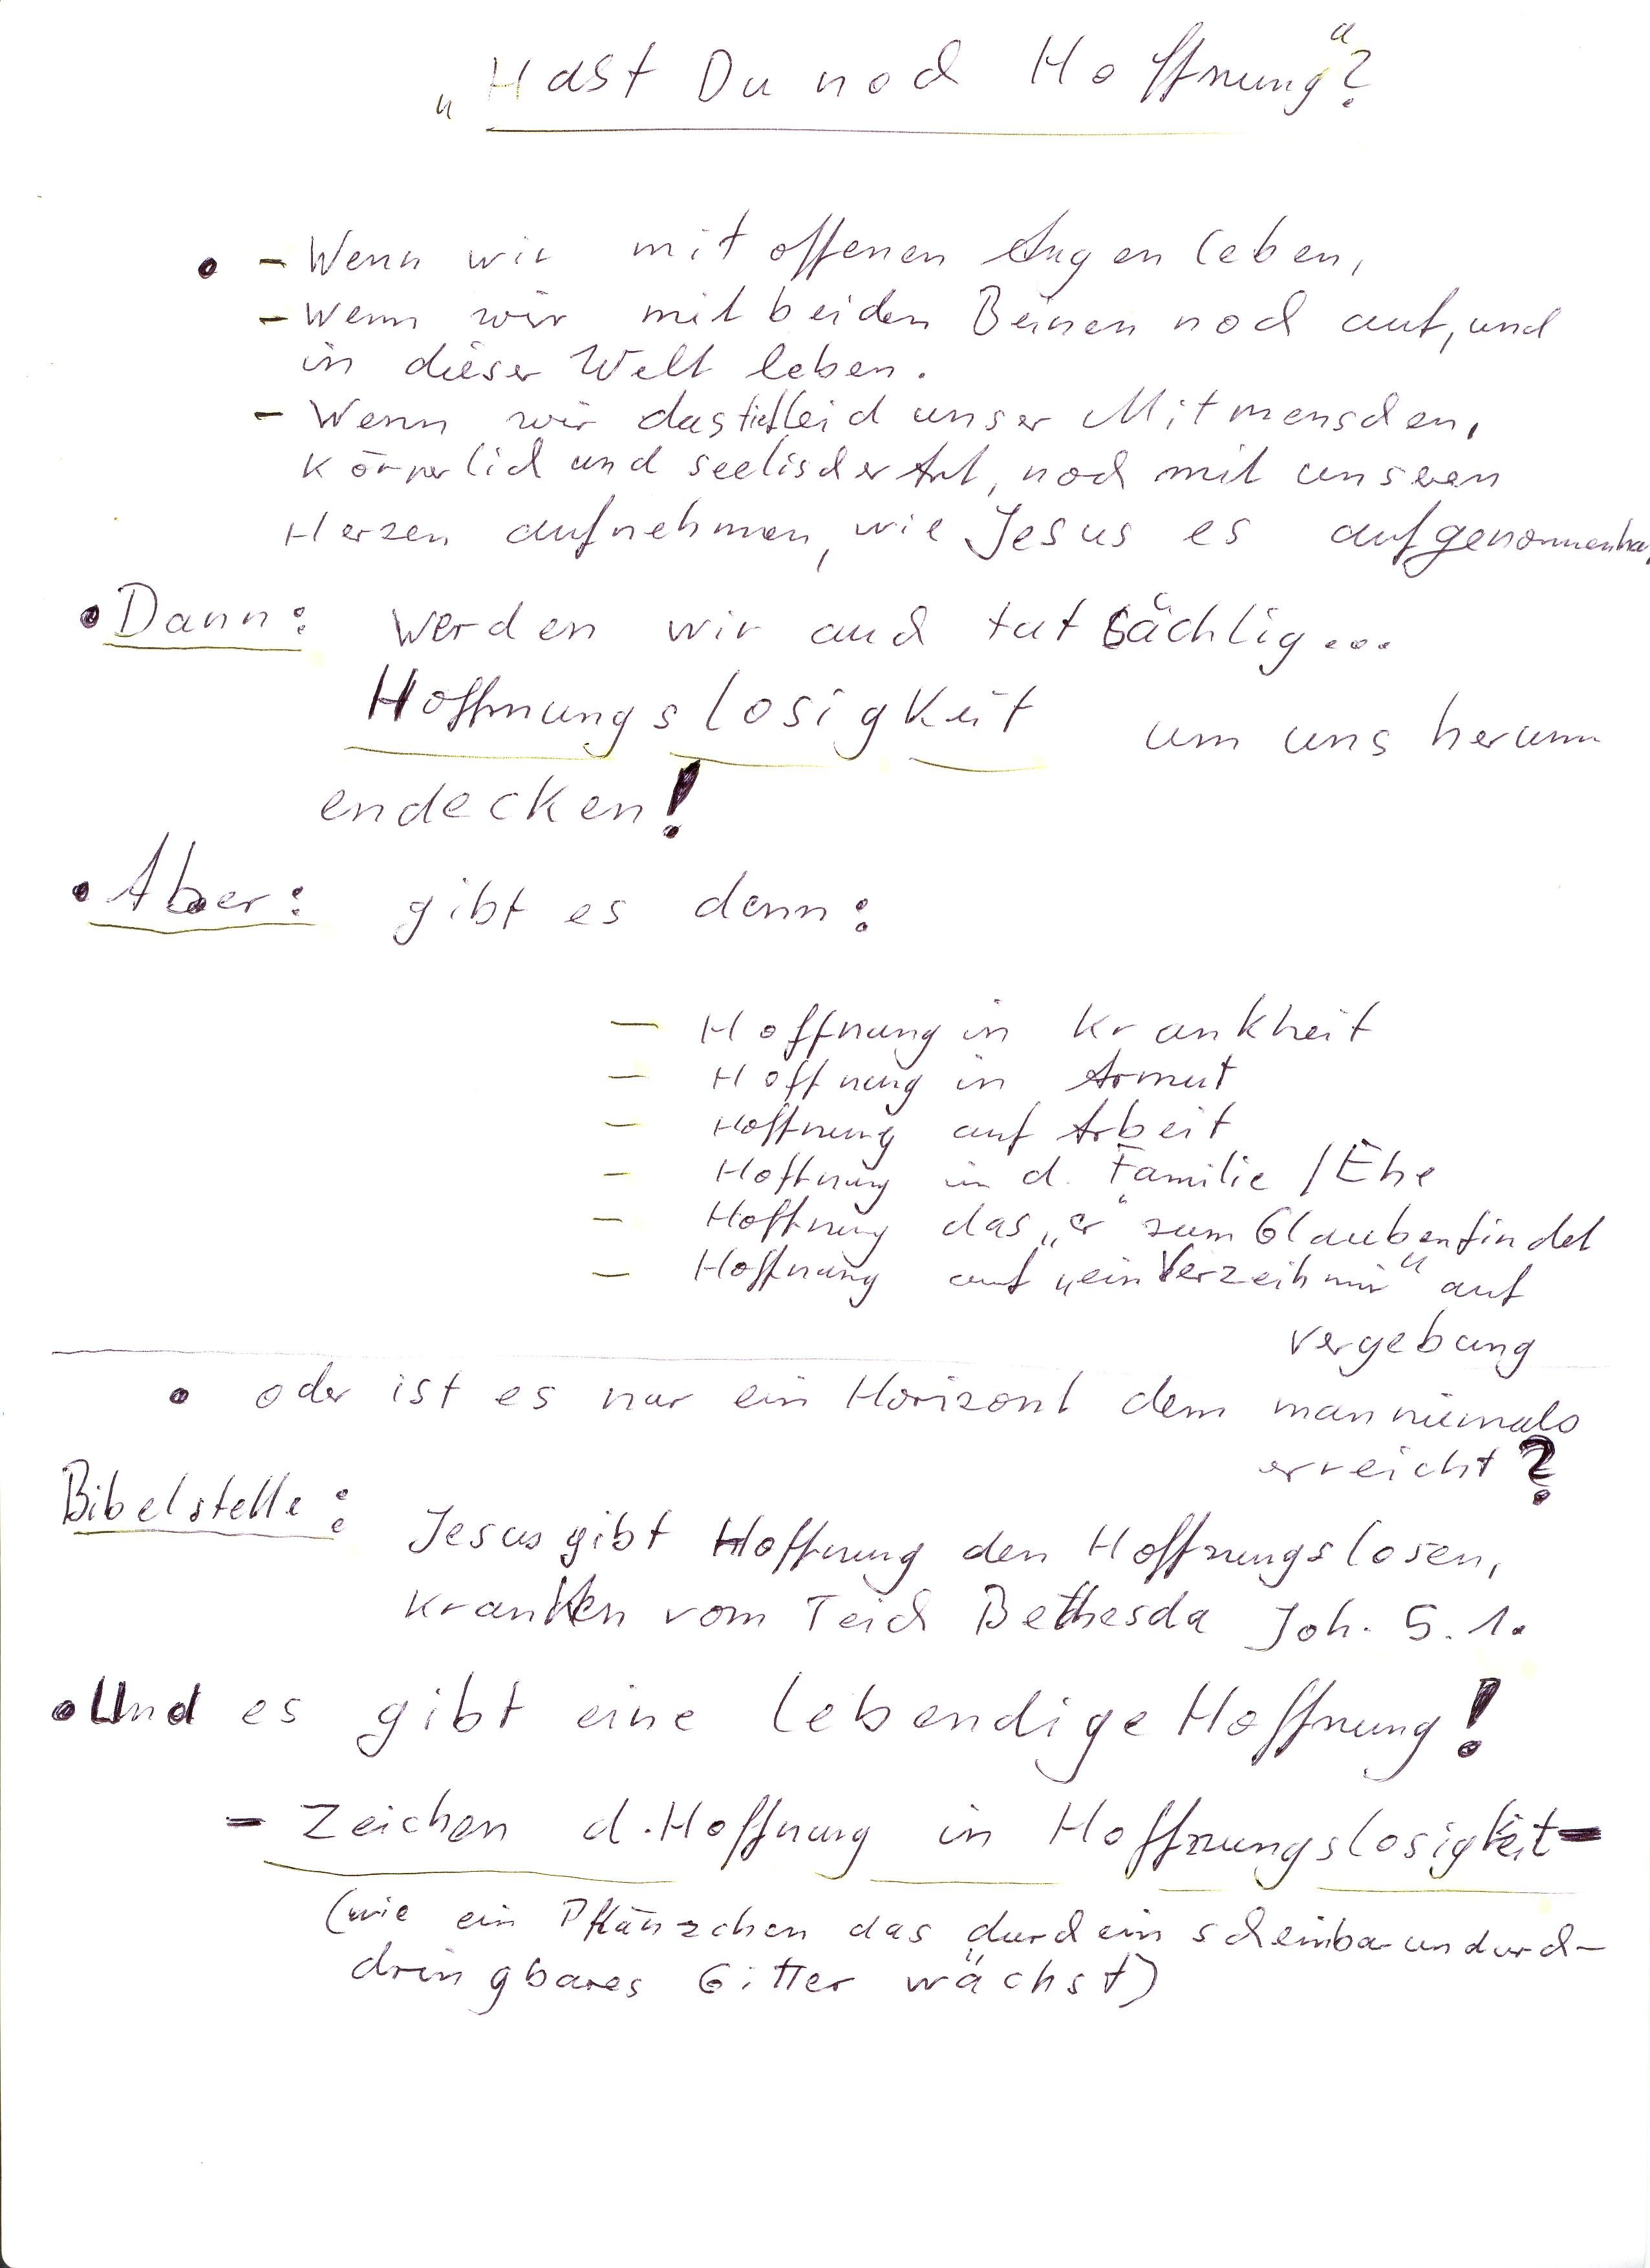 „Hast Du noch Hoffnung“?
• – Wenn wir mit offenen Augen leben,
– Wenn wir mit beiden Beinen noch auf, und
in dieser Welt leben.
– Wenn wir das tiefe Leid unser Mitmenschen,
körperlich und seelischer Art, noch mit unseren
Herzen aufnehmen, wie Jesus es aufgenommen
• Dann: werden wir auch tatsächlig...
Hoffnungslosigkeit um uns herum
endecken!
• Aber: gibt es denn:
– Hoffnung in Krankheit
– Hoffnung in Armut
– Hoffnung auf Arbeit
– Hoffnung in d. Familie / Ehe
– Hoffnung das „er“ zum Glauben findet
– Hoffnung auf „ein Verzeih mir“ auf
Vergebung
• oder ist es nur ein Horizont dem man niemals
erreicht?
Bibelstelle: Jesus gibt Hoffnung den Hoffnungslosen,
kranken vom Teich Bethesda Joh. 5.1.
• Und es gibt eine lebendige Hoffnung!
– Zeichen d. Hoffnung in Hoffnungslosigkeit –
(wie ein Pflänzchen das durch ein scheinbar undurch-
dringbares Gitter wächst)